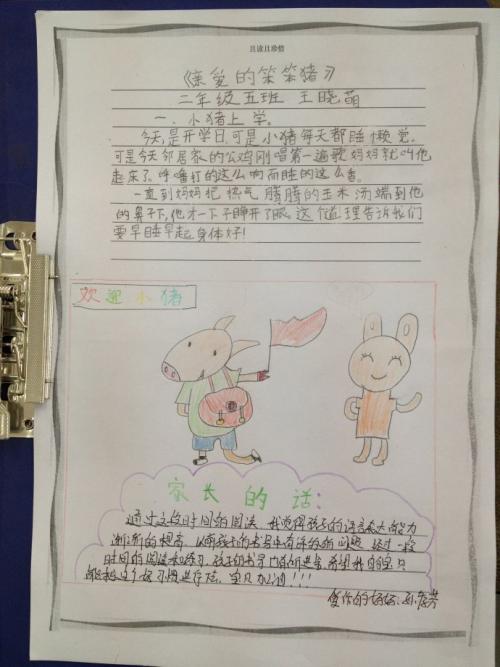 且读且珍惜
《亲爱的笨笨猪》
二年级五班 王晓萌
一、小猪上学。
今天,是开学日,可是小猪每天都睡懒觉,
可是今天邻居家的公鸡刚唱第一遍歌妈妈就叫他
起床了。呼噜打的这么响而睡的这么香。
一直到妈妈把热气腾腾的玉米汤端到他
的鼻子下,他才一下子睁开了眼。这个道理告诉我们
要早睡早起身体好!
欢迎小猪
家长的话:
通过这段时间的阅读,我觉得孩子的语言表达能力
渐渐的提高,以前孩子的书写中有
时间的阅读和练习,孩子的书写
习惯进行下去,宝贝加油!!!